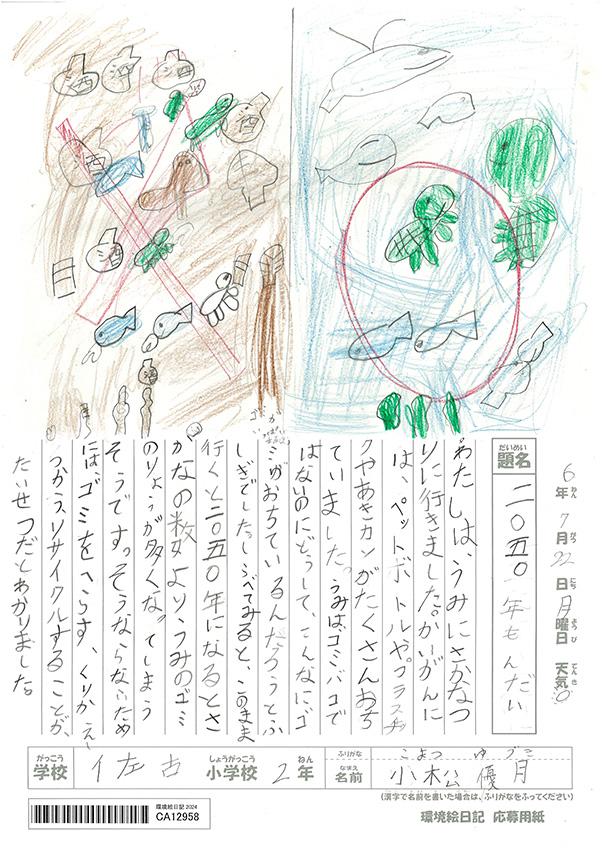 酒
酒
酒
酒
酒
酒
酒
6年7月22日月曜日 天気
ねん がつ にち ようび てんき
だいめい
題名 二〇五〇年もんだい
わたしは、うみにさかなつ
りに行きました。かいがんに
は、ペットボトルやプラスチッ
クやあきカンがたくさんおち
ていました。うみは、ゴミバコで
はないのにどうして、こんなにゴ
ミがおちているんだろうとふ
しぎでした。しらべてみると、このまま
行くと二〇五〇年になるとさ
かなの数よりうみのゴミ
のりょうが多くなってしまう
そうです。そうならないため
にはゴミをへらす、くりかえし
つかう、リサイクルすることが、
たいせつだとわかりました。
がっこう しょうがっこう ねん
学校 佐古 小学校 2年
ふりがな こまつ ゆづき
なまえ
名前 小松優月
(漢字で名前を書いた場合は、ふりがなをふってください)
環境絵日記 2024
CA12958
環境絵日記 応募用紙